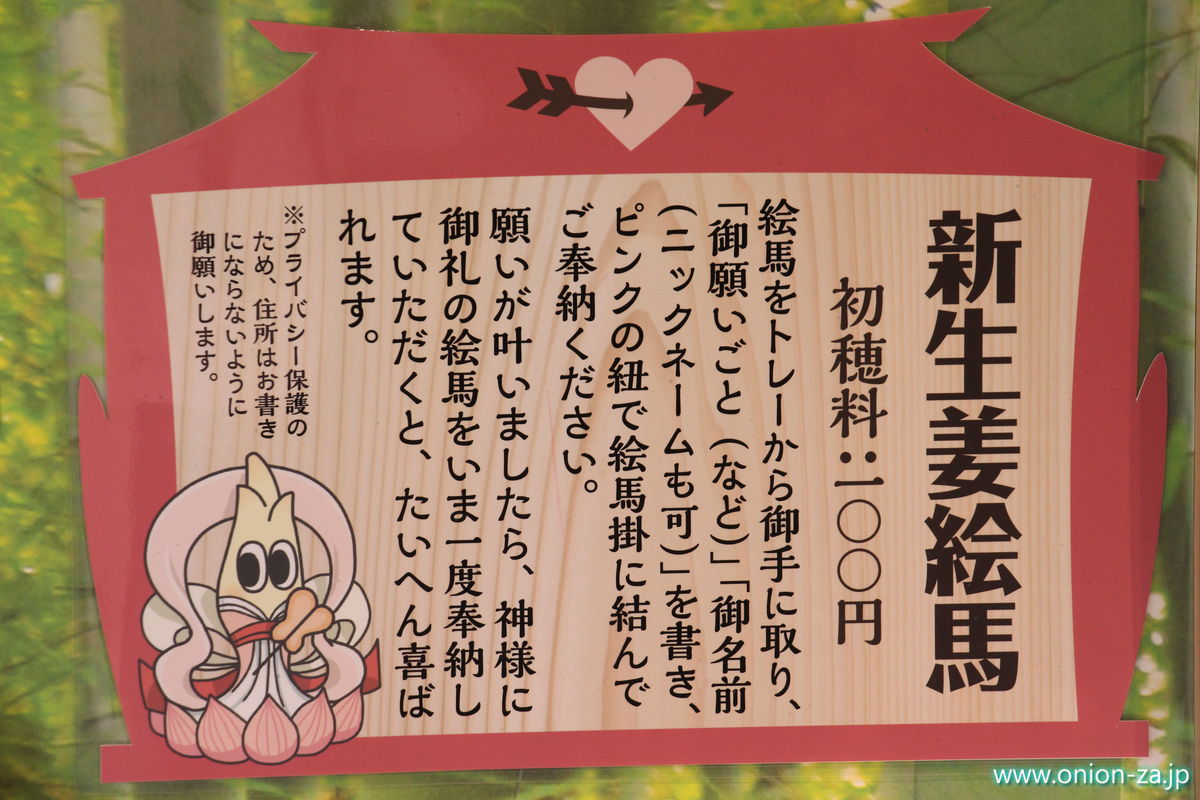 新生姜絵馬
初穂料：二〇〇円
絵馬をトレーから御手に取り、
「御願いごと（など）」「御名前
（ニックネームも可）」を書き、
ピンクの紐で絵馬掛に結んで
ご奉納ください。
願いが叶いましたら、神様に
御礼の絵馬をいま一度奉納し
ていただくと、たいへん喜ば
れます。
※プライバシー保護の
ため、住所はお書き
にならないように
御願いします。
www.onion-za.jp